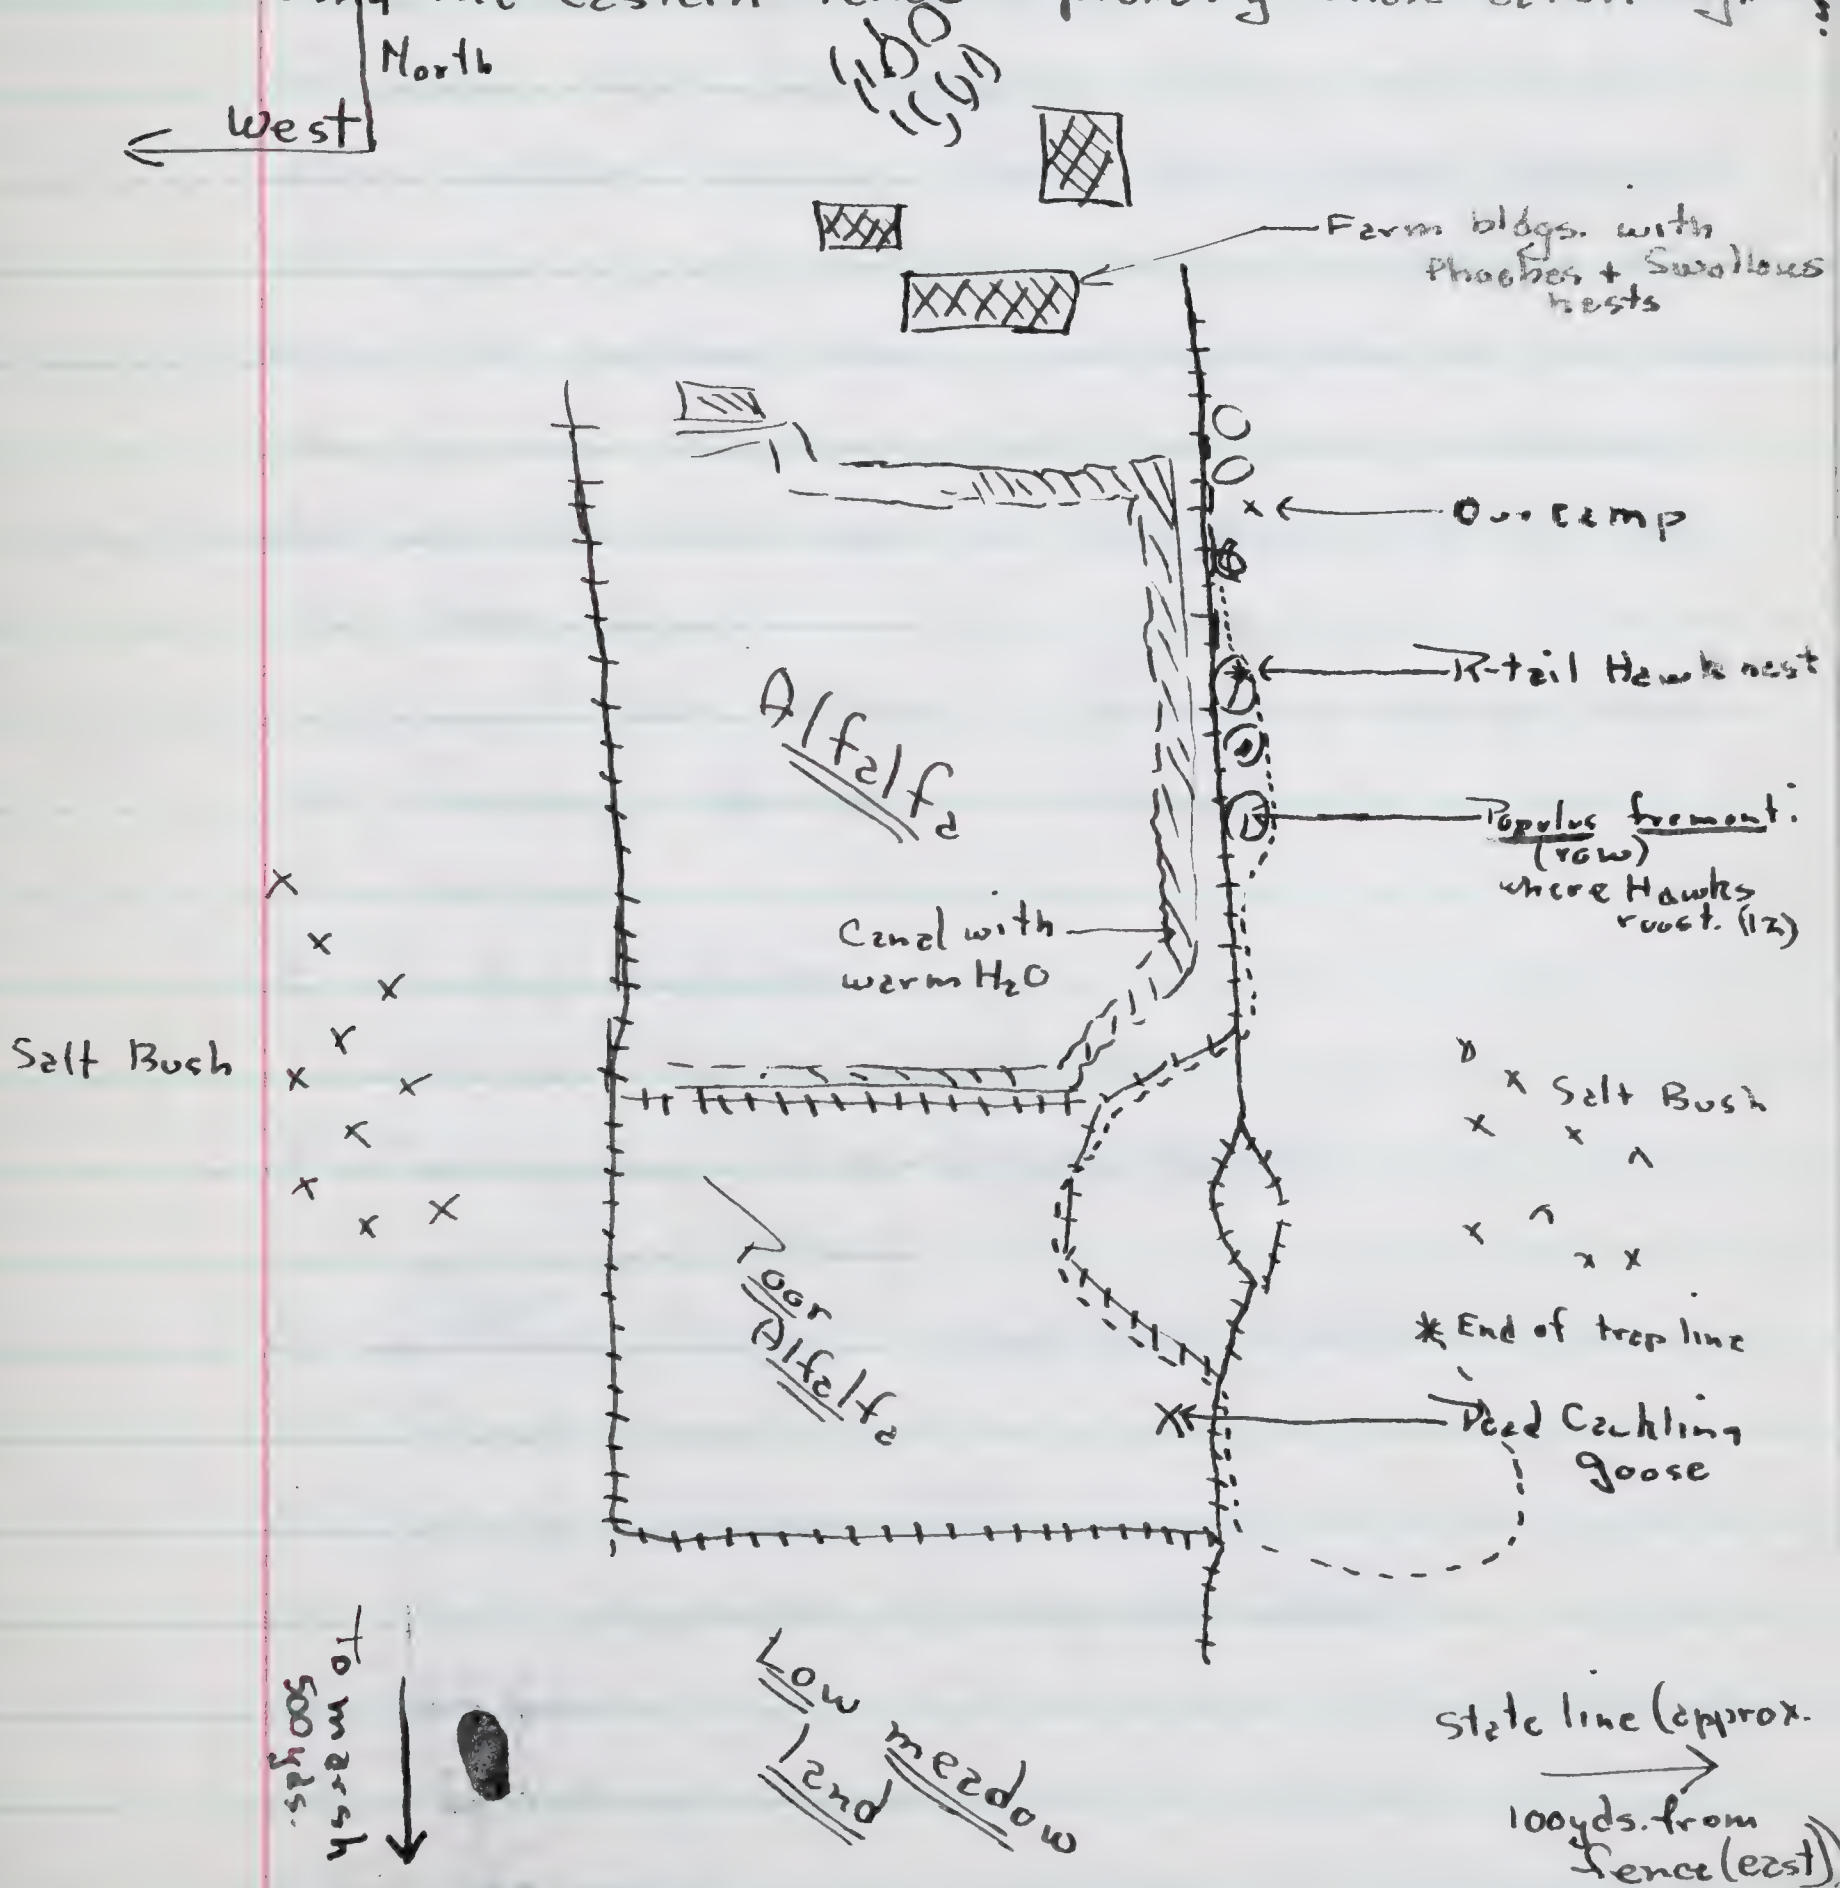 the eastern fence
North
West
Farm bldgs. with
Phoebes + Swallows
nests
Our camp
R-tail Hawk nest
Alfalfa
Populus fremonti
(row)
where Hawks
roost. (12)
Canal with
warm H2O
Salt Bush
Salt Bush
Poor
Alfalfa
* End of trap line
Dead Cackling
goose
to marsh
500 yds.
Low meadow
land
State line (approx.
100 yds. from
fence (east))